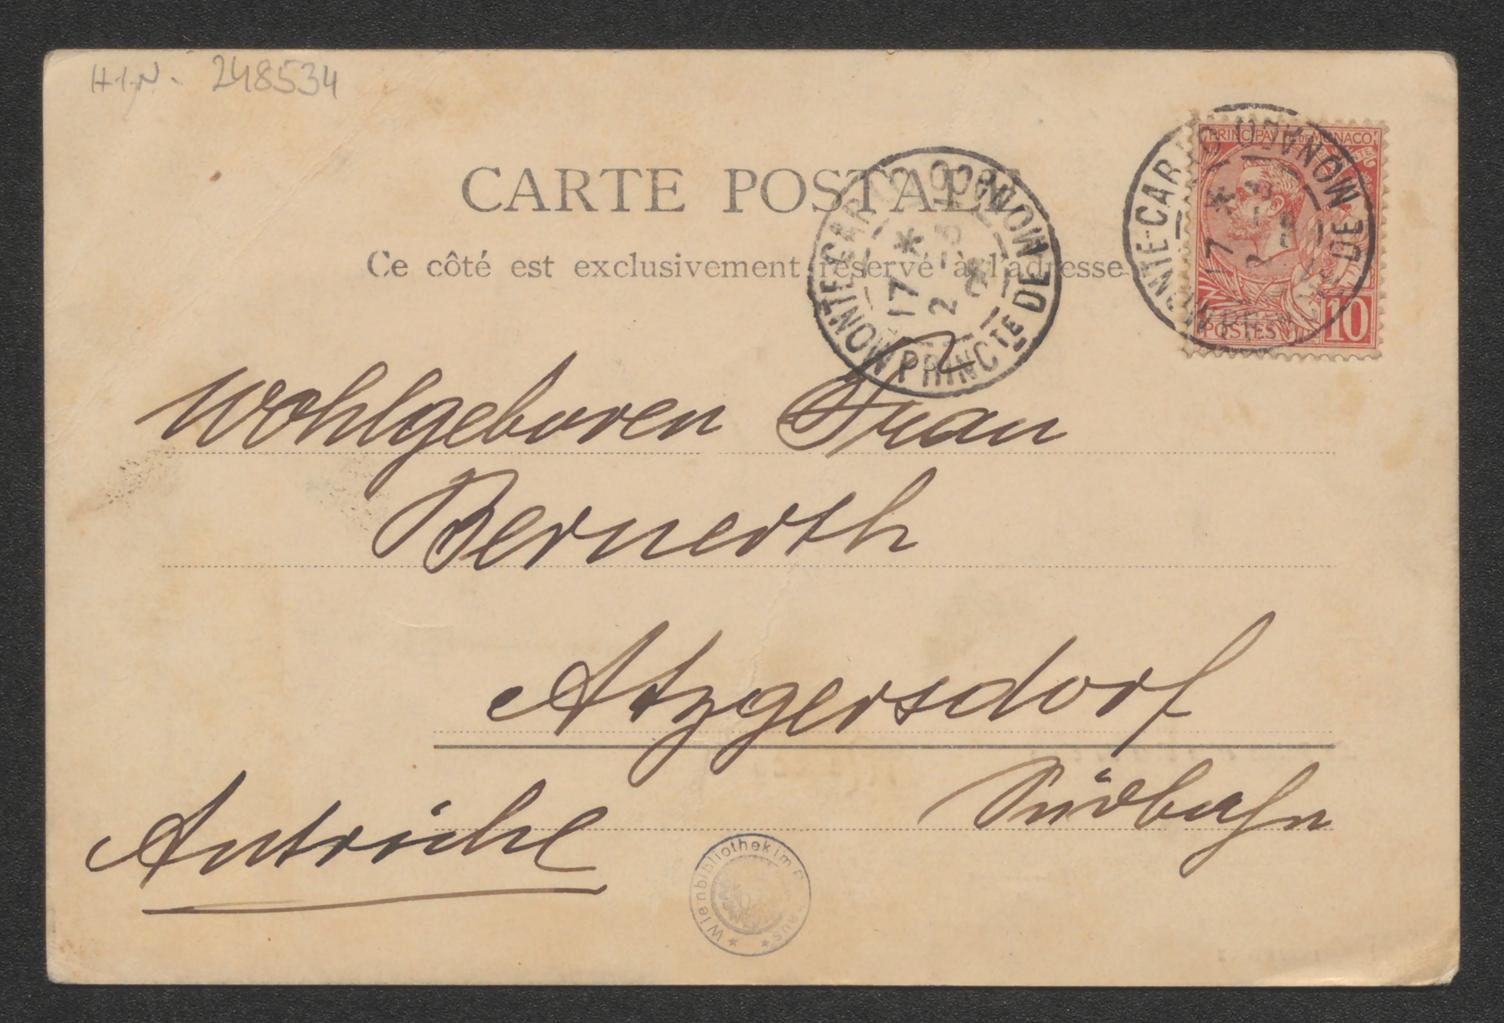 H.I.N. 248534
CARTE POSTALE
Ce côté est exclusivement réservé à l'adresse
MONTE-CARLO
PRINCTE DE MONACO
17 *
2
PRINCIPAUTÉ DE MONACO
POSTES
10
MONTE-CARLO
DE MONACO
17 *
2
Wohlgeboren Frau
Bernerth
Atzgersdorf
Südbahn
Autriche
Wienbibliothek im